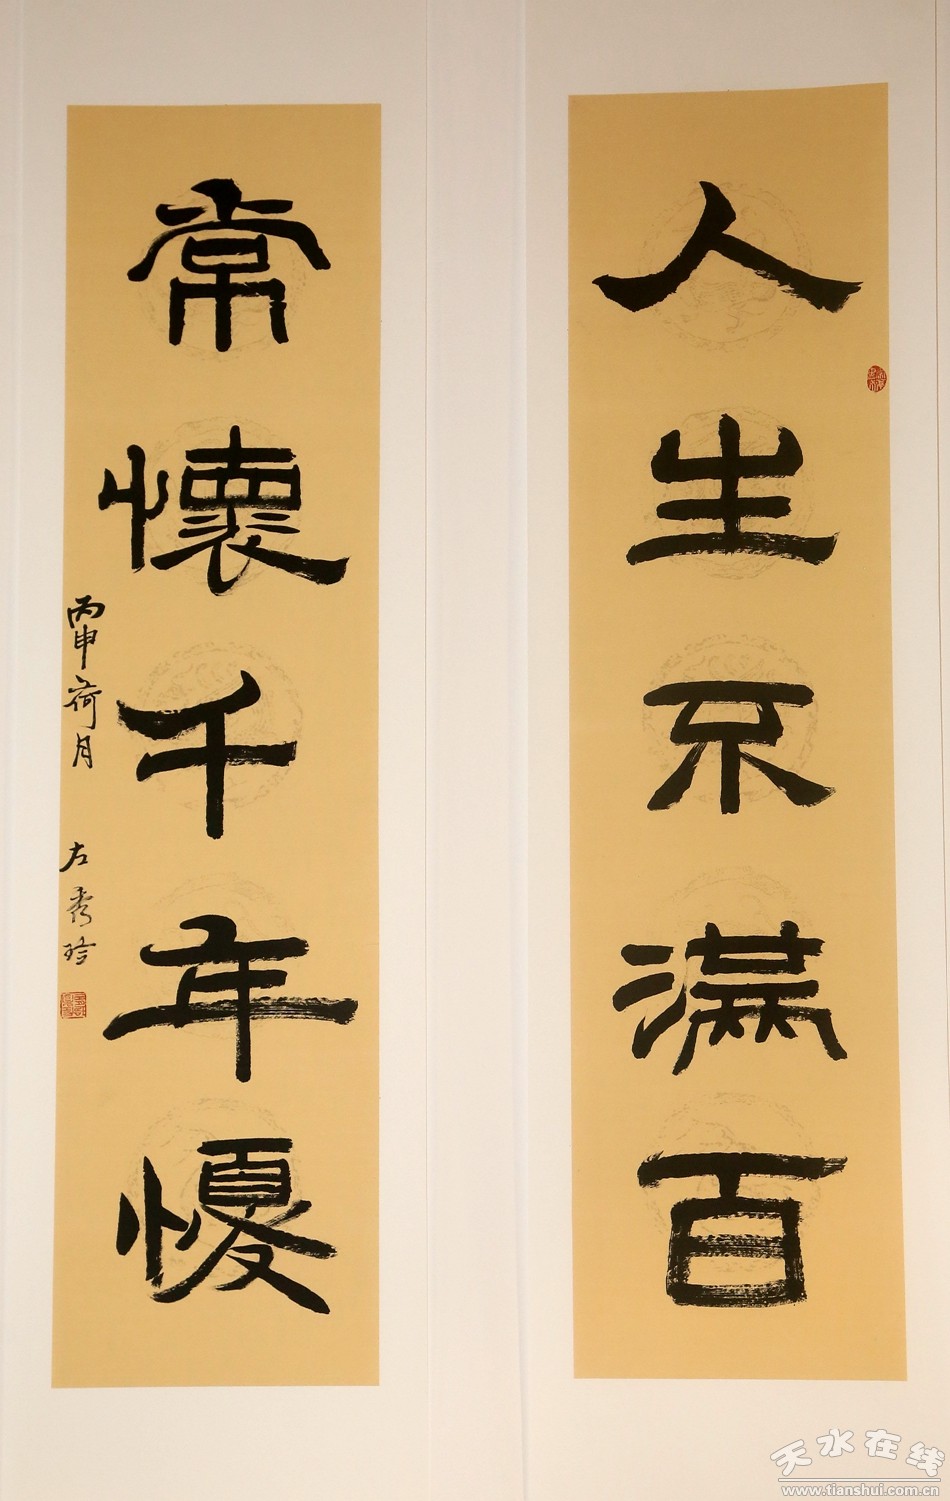 人生不满百
常懷千年憂
丙申荷月
左秀玲
天水在线
www.tianshui.com.cn